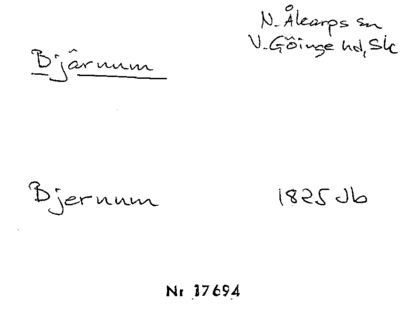 N. Åkarps sn
Bjärnum
V. Göinge hd, Sk
Bjernum 1825 Jb
Nr 17694